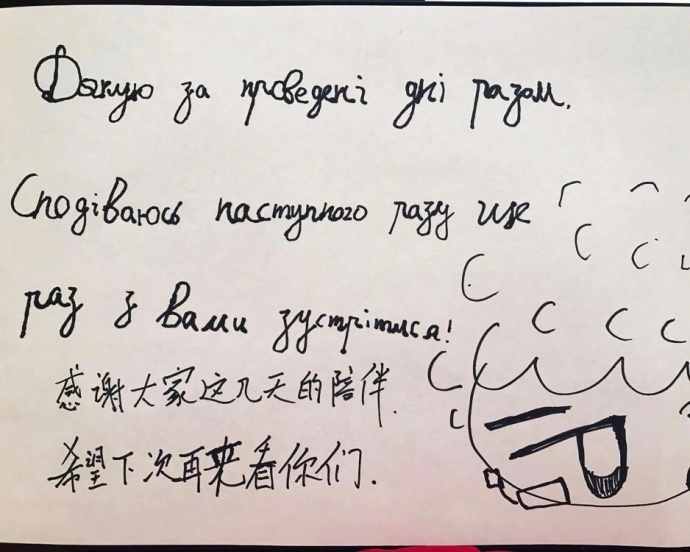 Дякую за проведені дні разом.
Сподіваюсь наступного разу ще
раз з вами зустрітися!
感谢大家这几天的陪伴.
希望下次再来看你们.